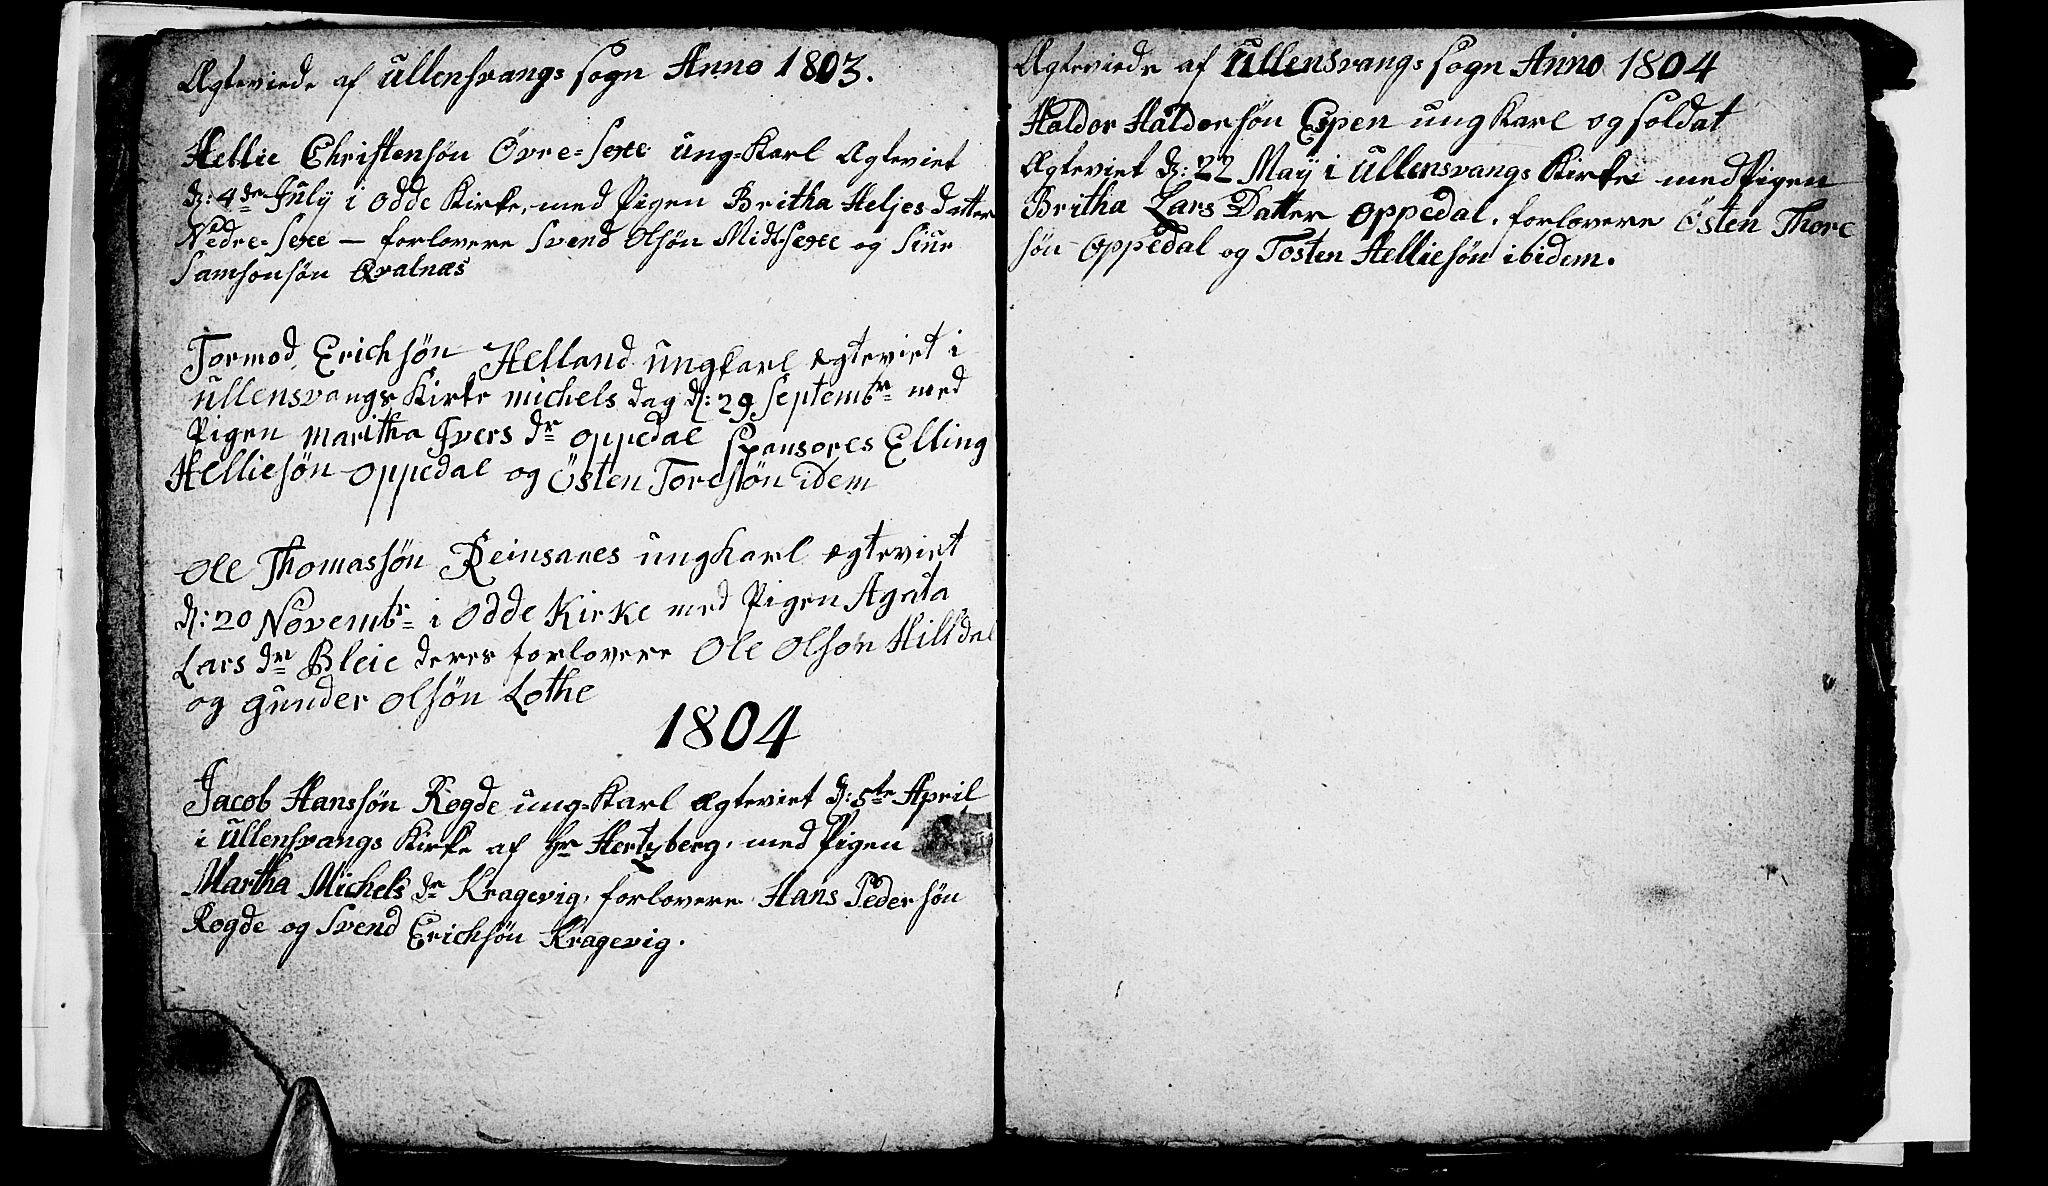 Ægteviede af Ullensvangs sogn Anno 1803.
Hellie Christensøn Øvre-Sexe ung-Karl Ægteviet
d: 4de July i Odde Kirke, med Pigen Britha Heljes datter
Nedre-Sexe — forlovere Svend Olsøn Midt-Sexe og Siur
Samsonsøn Qvalnæs
Tormod Erichsøn Helland ungkarl ægteviet i
Ullensvangs Kirke michels dag d: 29 Septembr med
Pigen Maritha Ivers dr Oppedal Sponsores Elling
Helliesøn Oppedal og Østen Toresøn idem
Ole Thomassøn Reinsanes ungkarl ægteviet
d: 20 Novembr i Odde Kirke med Pigen Agata
Lars dr Bleie deres forlovere Ole Olsøn Hilldal
og Gunder Olsøn Lothe
1804
Jacob Hanssøn Rogde ung-Karl Ægteviet d: 5te April
i Ullensvangs Kirke af Hr Hertzberg, med Pigen
Martha Michels dr Kragevig, forlovere Hans Pedersøn
Rogde og Svend Erichsøn Kragevig.
Ægteviede af Ullensvangs sogn Anno 1804
Haldor Haldorsøn Espen ung Karl og soldat
Ægteviet d: 22 Maÿ i Ullensvangs Kirke med Pigen
Britha Lars Datter Oppedal, forlovere Østen Thore
søn Oppedal og Tosten Helliesøn ibidem.